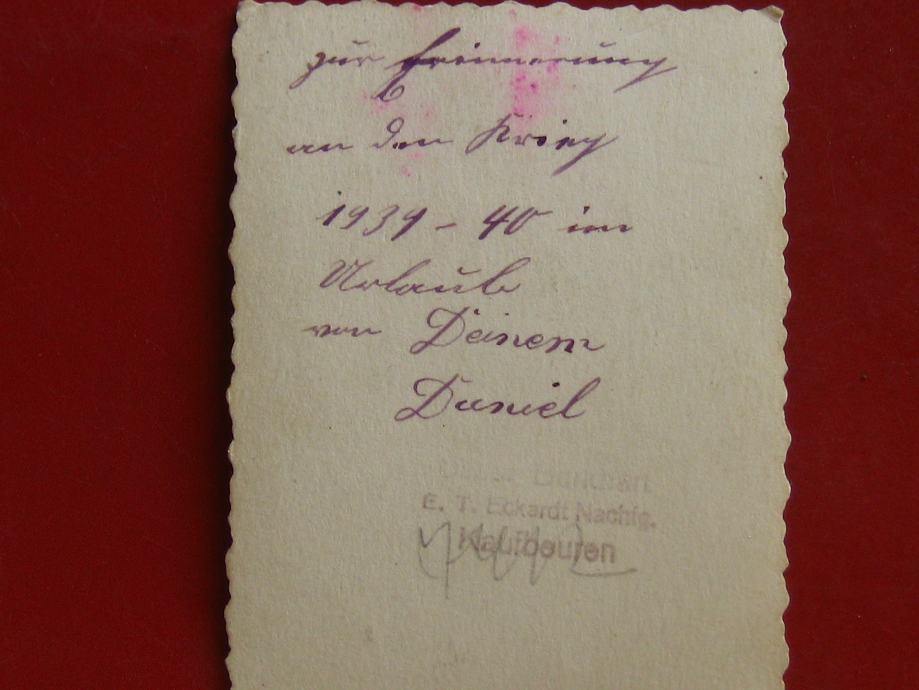 zur Erinnerung
an den Krieg
1939 - 40 im
Urlaub
von Deinem
Daniel
Burkhart
E. T. Eckardt Nachfg.
Kaufbeuren